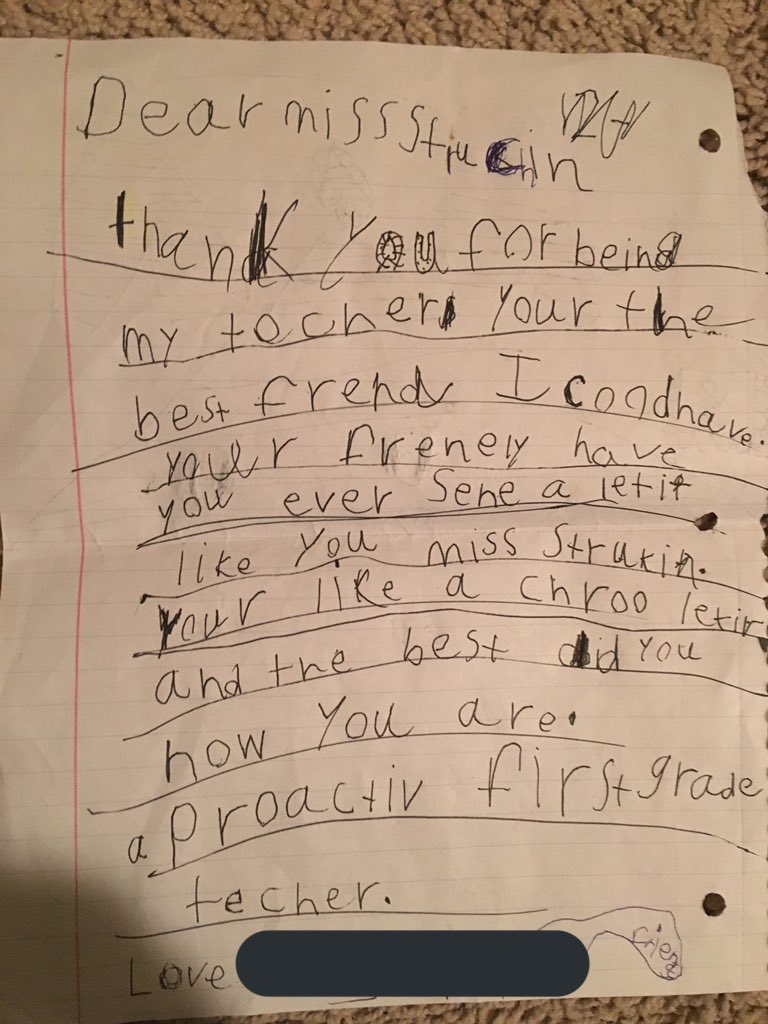 Dear miss Strukin
thank you for being
my tocher your the
best frend I coodhave.
your frenely have
you ever sene a letit
like you miss Strukin.
your like a chroo letir
and the best did you
now you are.
a proactiv first grade
techer.
Love
friend